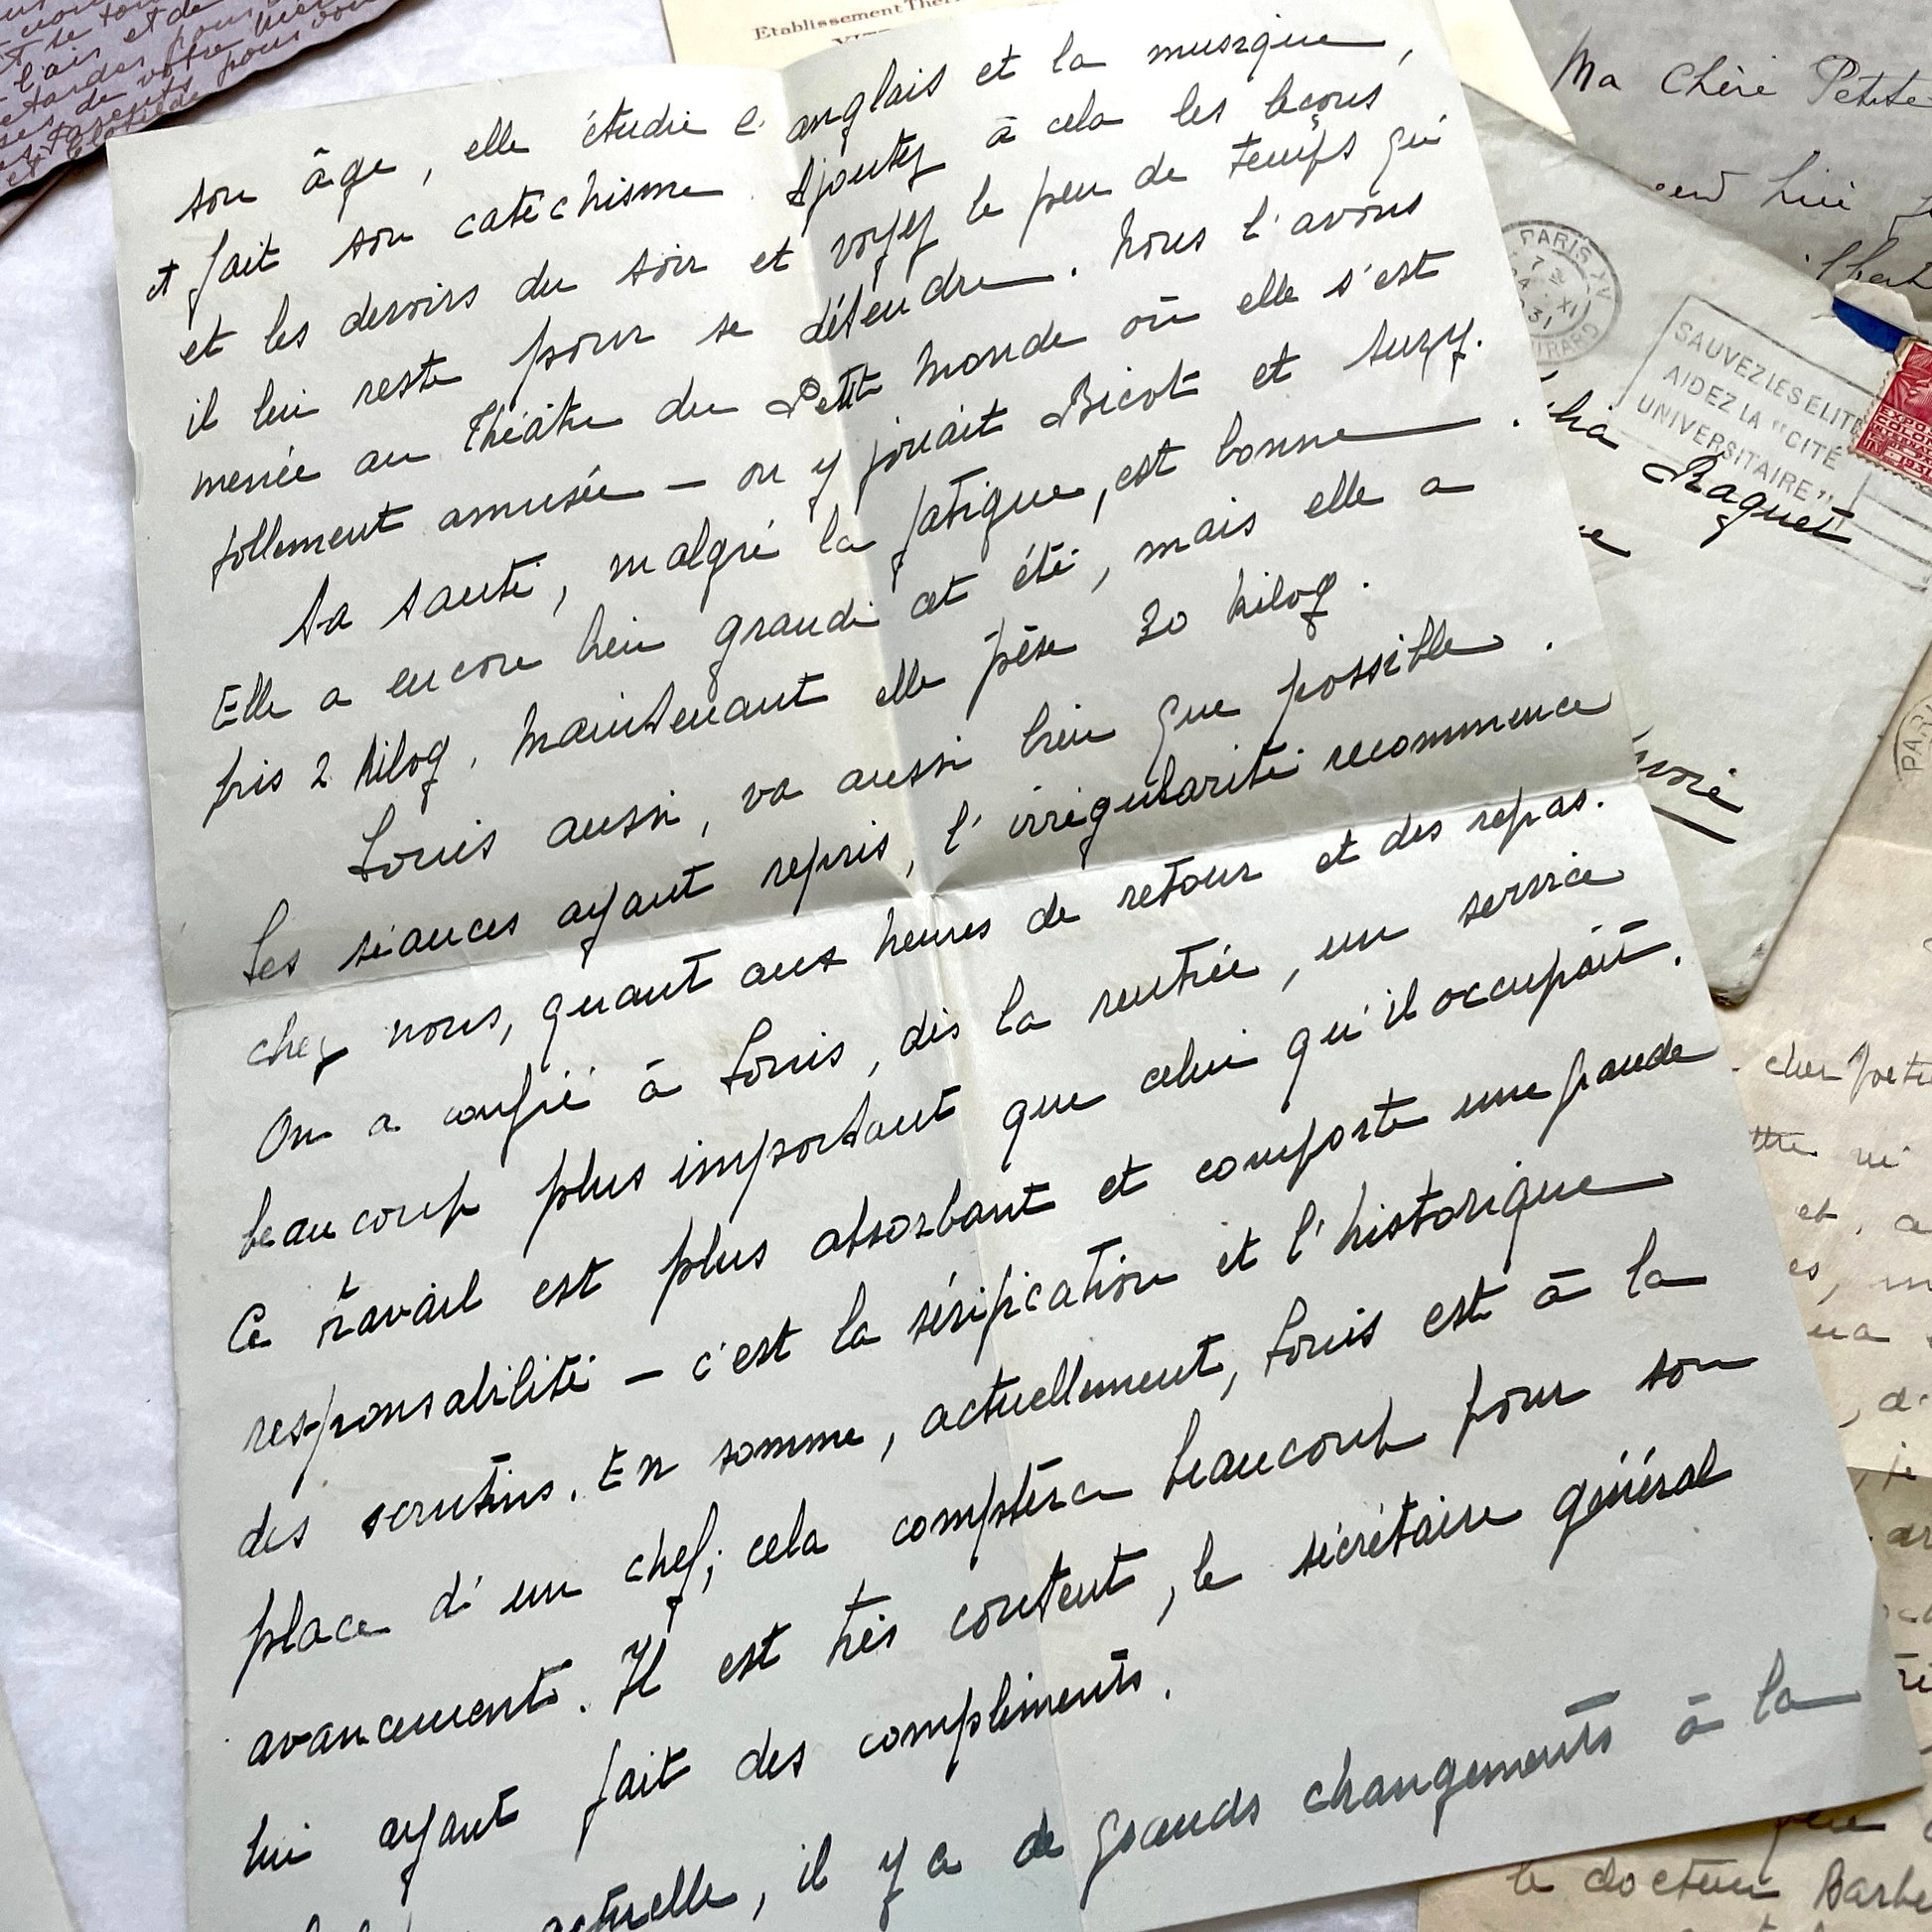 son âge, elle étudie l'anglais et la musique,
et fait son catéchisme. Ajoutez à cela les leçons
et les devoirs du soir et voyez le peu de temps qui
il lui reste pour se détendre. Nous l'avons
menée au Théâtre du Petit Monde où elle s'est
follement amusée — on y jouait Bicot et Suzy.
Sa santé, malgré la fatigue, est bonne.
Elle a encore bien grandi cet été, mais elle a
pris 2 kilog. Maintenant elle pèse 30 kilog.
Louis aussi, va aussi bien que possible.
Les séances ayant repris, l'irrégularité recommence
chez nous, quant aux heures de retour et des repas.
On a confié à Louis, dès la rentrée, un service
beaucoup plus important que celui qu'il occupait.
Ce travail est plus absorbant et comporte une grande
responsabilité — c'est la vérification et l'historique
des scrutins. En somme, actuellement, Louis est à la
place d'un chef; cela comptera beaucoup pour son
avancement. Il est très content, le sécrétaire général
lui ayant fait des compliments.
actuelle, il y a de grands changements à la
Etablissement Ther
Ma Chère Petite
PARIS XV
XI
31
SAUVEZ LES ELITE
AIDEZ LA "CITÉ
UNIVERSITAIRE"
Raguet
voie
PARI
cher
et, a
es, m
le docteur Barbe
l'air et de
de votre
pour vou
et Clotilde